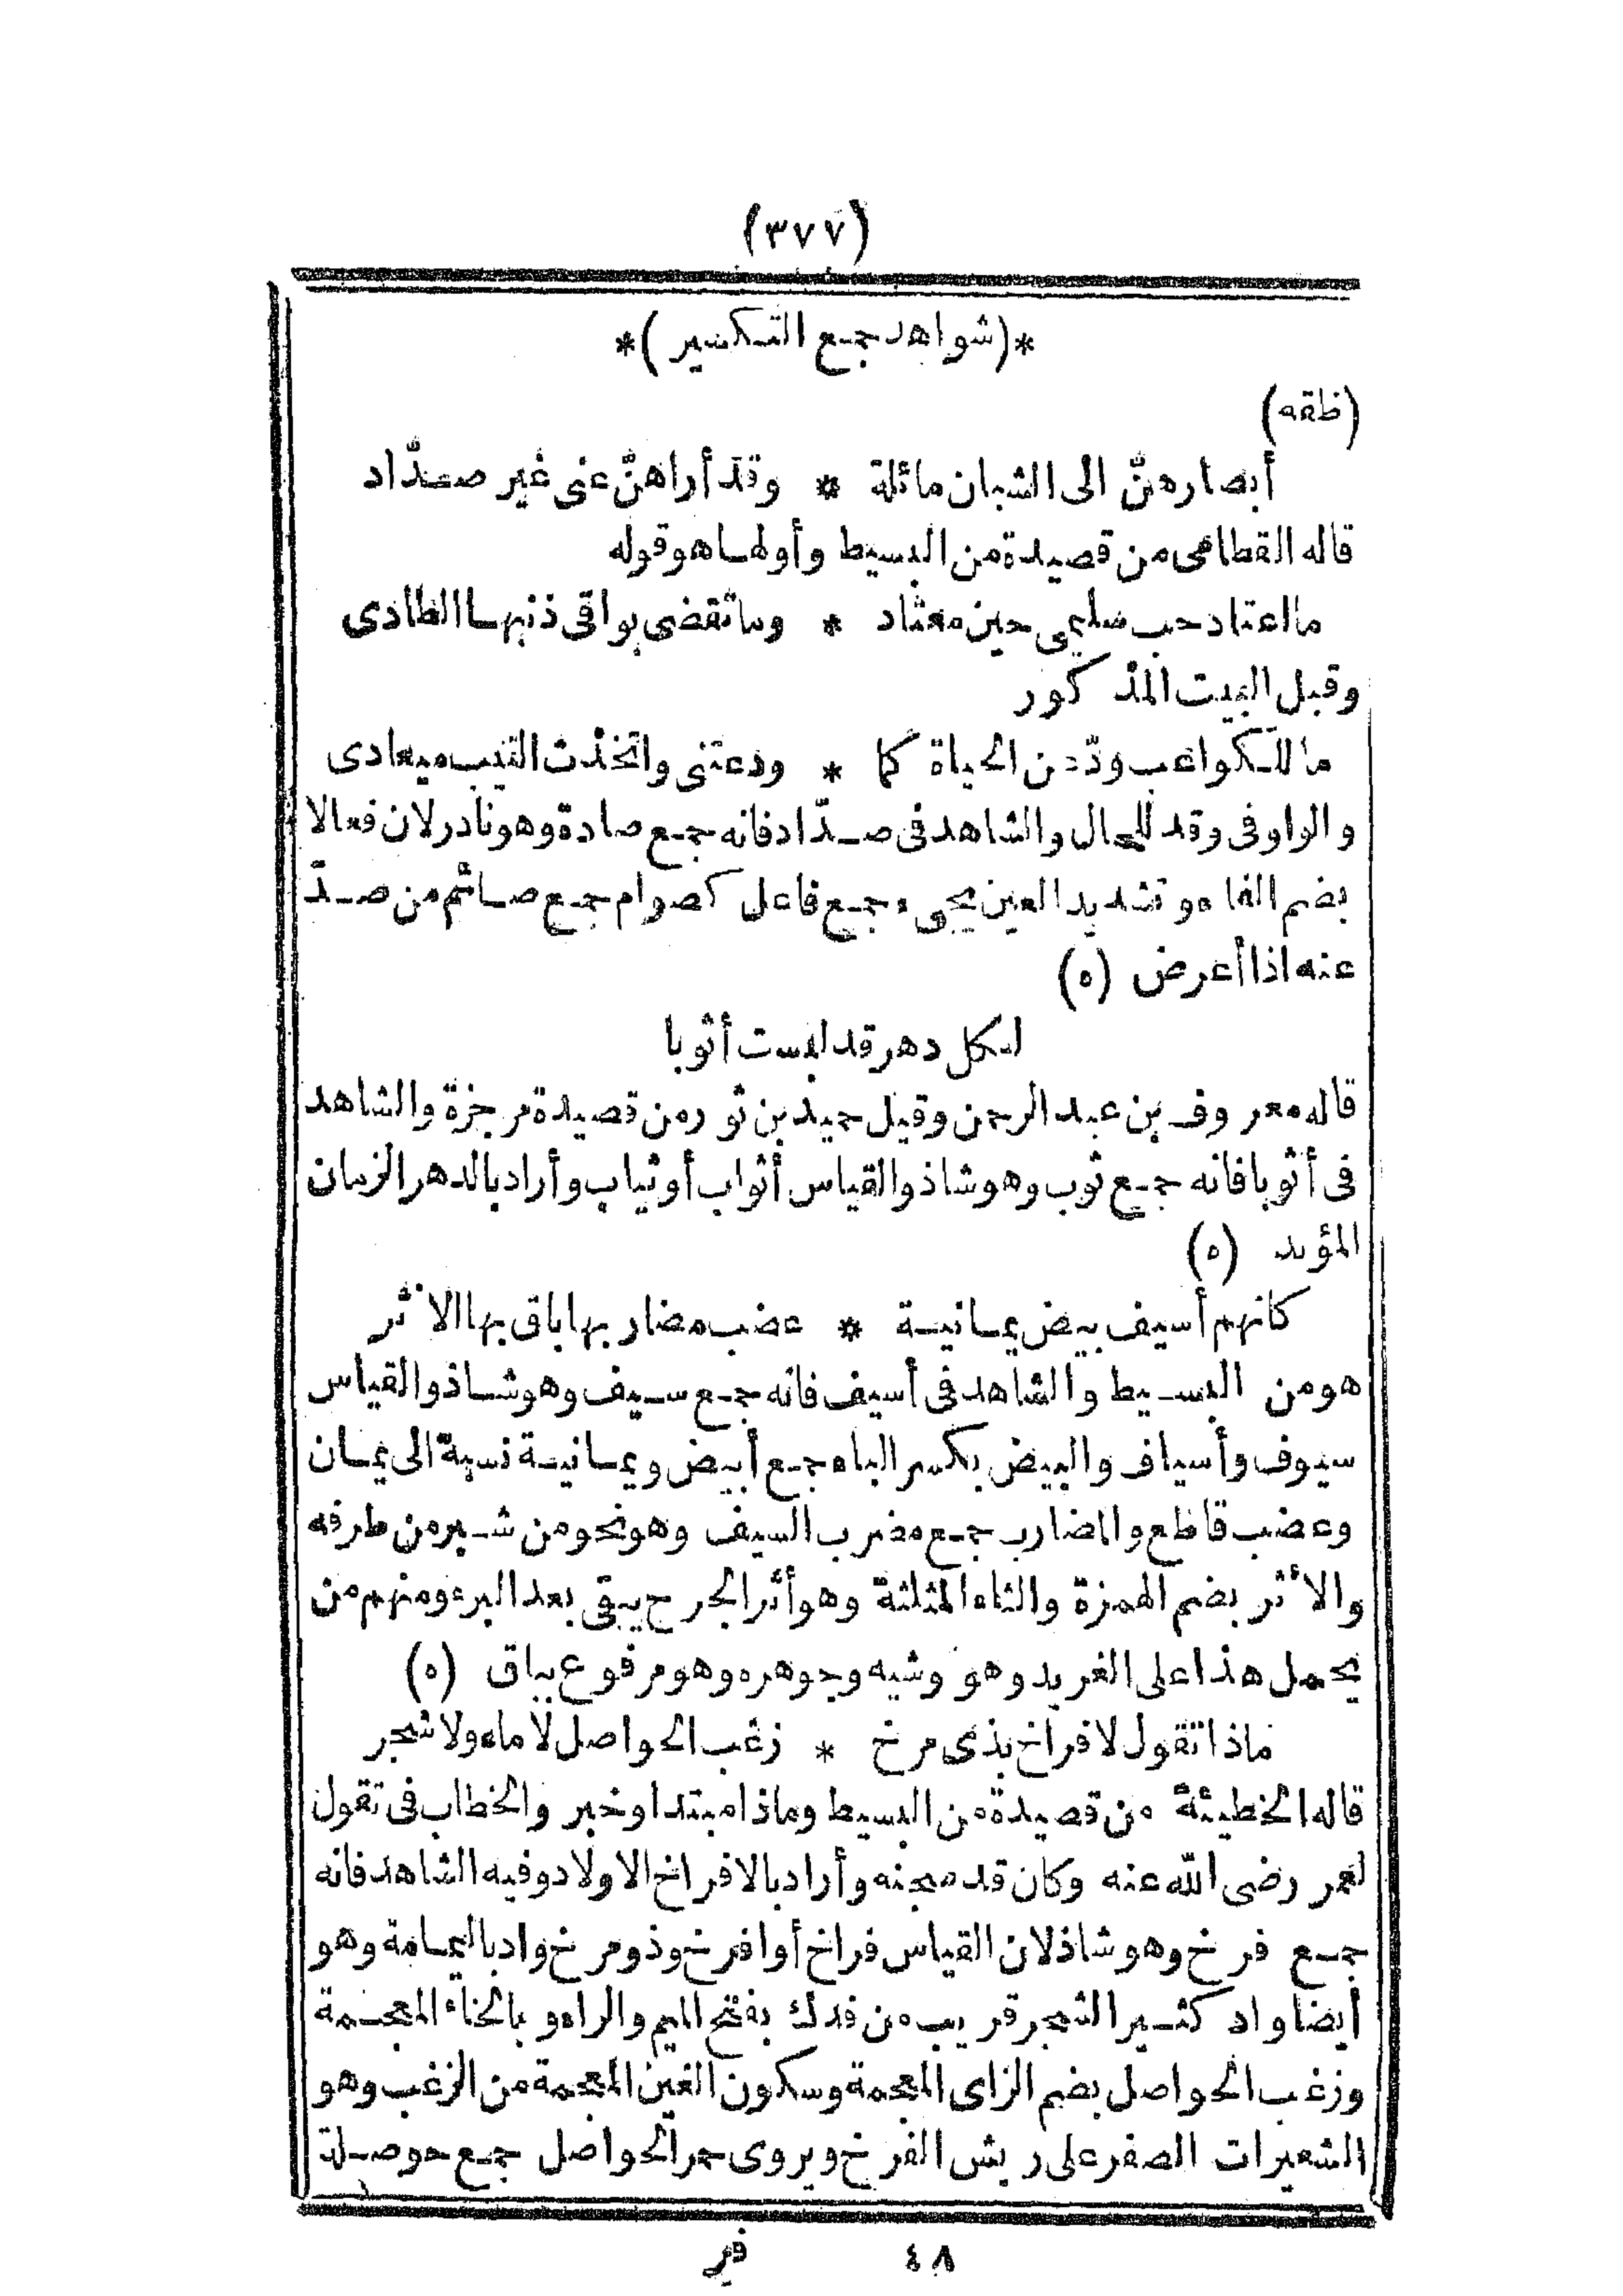 (٣٧٧)
*(شواهد جمع التكسير)*
(ظقه)
أبصارهنّ الى الشبان مائلة * وقد أراهنّ عنى غير صدّاد
قاله القطامى من قصيدة من البسيط وأولها هو قوله
ما اعتاد حب سليمى حين معتاد * وما تقضى بواقى ذنبها الطادى
وقبل البيت المذكور
ما للكواعب ودّعن الحياة كما * ودعتنى واتخذن الشيب ميعادى
والواو فى وقد للحال والشاهد فى صدّاد فانه جمع صادة وهو نادر لان فعالا
بضم الفاء وتشديد العين يجىء جمع فاعل كصوام جمع صائم من صدّ
عنه اذا أعرض (ه)
لكل دهر قد لبست أثوبا
قاله معروف بن عبد الرحمن وقيل حميد بن ثور من قصيدة مرجزة والشاهد
فى أثوبا فانه جمع ثوب وهو شاذ والقياس أثواب أو ثياب وأراد بالدهر الزمان
المؤبد (ه)
كانهم أسيف بيض يمانية * عضب مضاربها باق بها الاثر
هو من البسيط والشاهد فى أسيف فانه جمع سيف وهو شاذ والقياس
سيوف وأسياف والبيض بكسر الباء جمع أبيض ويمانية نسبة الى يمان
وعضب قاطع والمضارب جمع مضرب السيف وهو نحو من شبر من طرفه
والأثر بضم الهمزة والثاء المثلثة وهو أثر الجرح يبقى بعد البرء ومنهم من
يحمل هذا على الفريد وهو وشيه وجوهره وهو مرفوع بباق (ه)
ماذا تقول لافراخ بذى مرخ * زغب الحواصل لا ماء ولا شجر
قاله الحطيئة من قصيدة من البسيط وماذا مبتدا وخبر والخطاب فى تقول
لعمر رضى الله عنه وكان قد سجنه وأراد بالافراخ الاولاد وفيه الشاهد فانه
جمع فرخ وهو شاذ لان القياس فراخ أوافرخ وذو مرخ واد باليمامة وهو
أيضا واد كثير الشجر قريب من فدك بفتح الميم والراء وبالخاء المعجمة
وزغب الحواصل بضم الزاى المعجمة وسكون الغين المعجمة من الزغب وهو
الشعيرات الصفر على ريش الفرخ ويروى حمر الحواصل جمع حوصلة
٤٨ فر